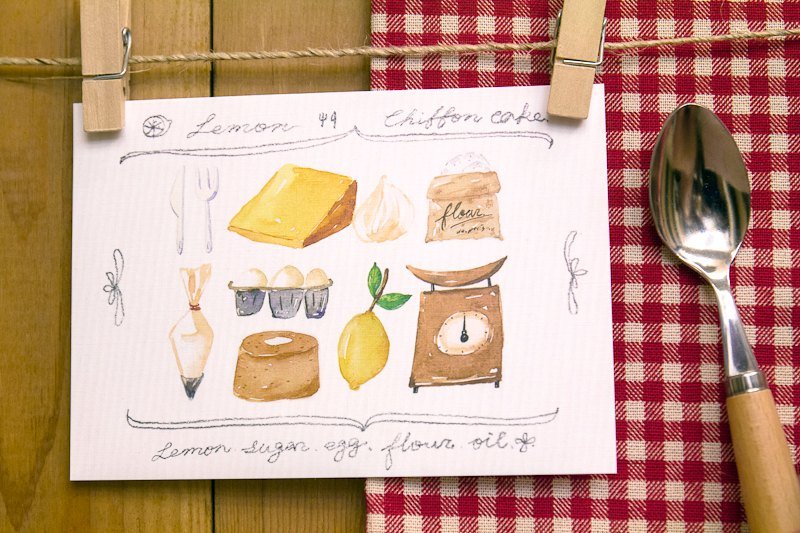 Lemon Chiffon cake.
flour
Lemon. sugar. egg. flour. oil.